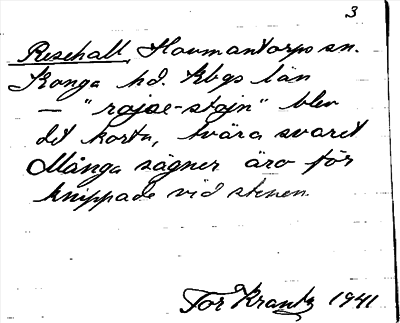 3
Resehall, Hovmantorps sn.
Konga hd. Kbgs län
— "rajse-stajn" blev
det korta, tvära svaret
Många sägner äro för
knippade vid stenen.
Tor Krantz 1941